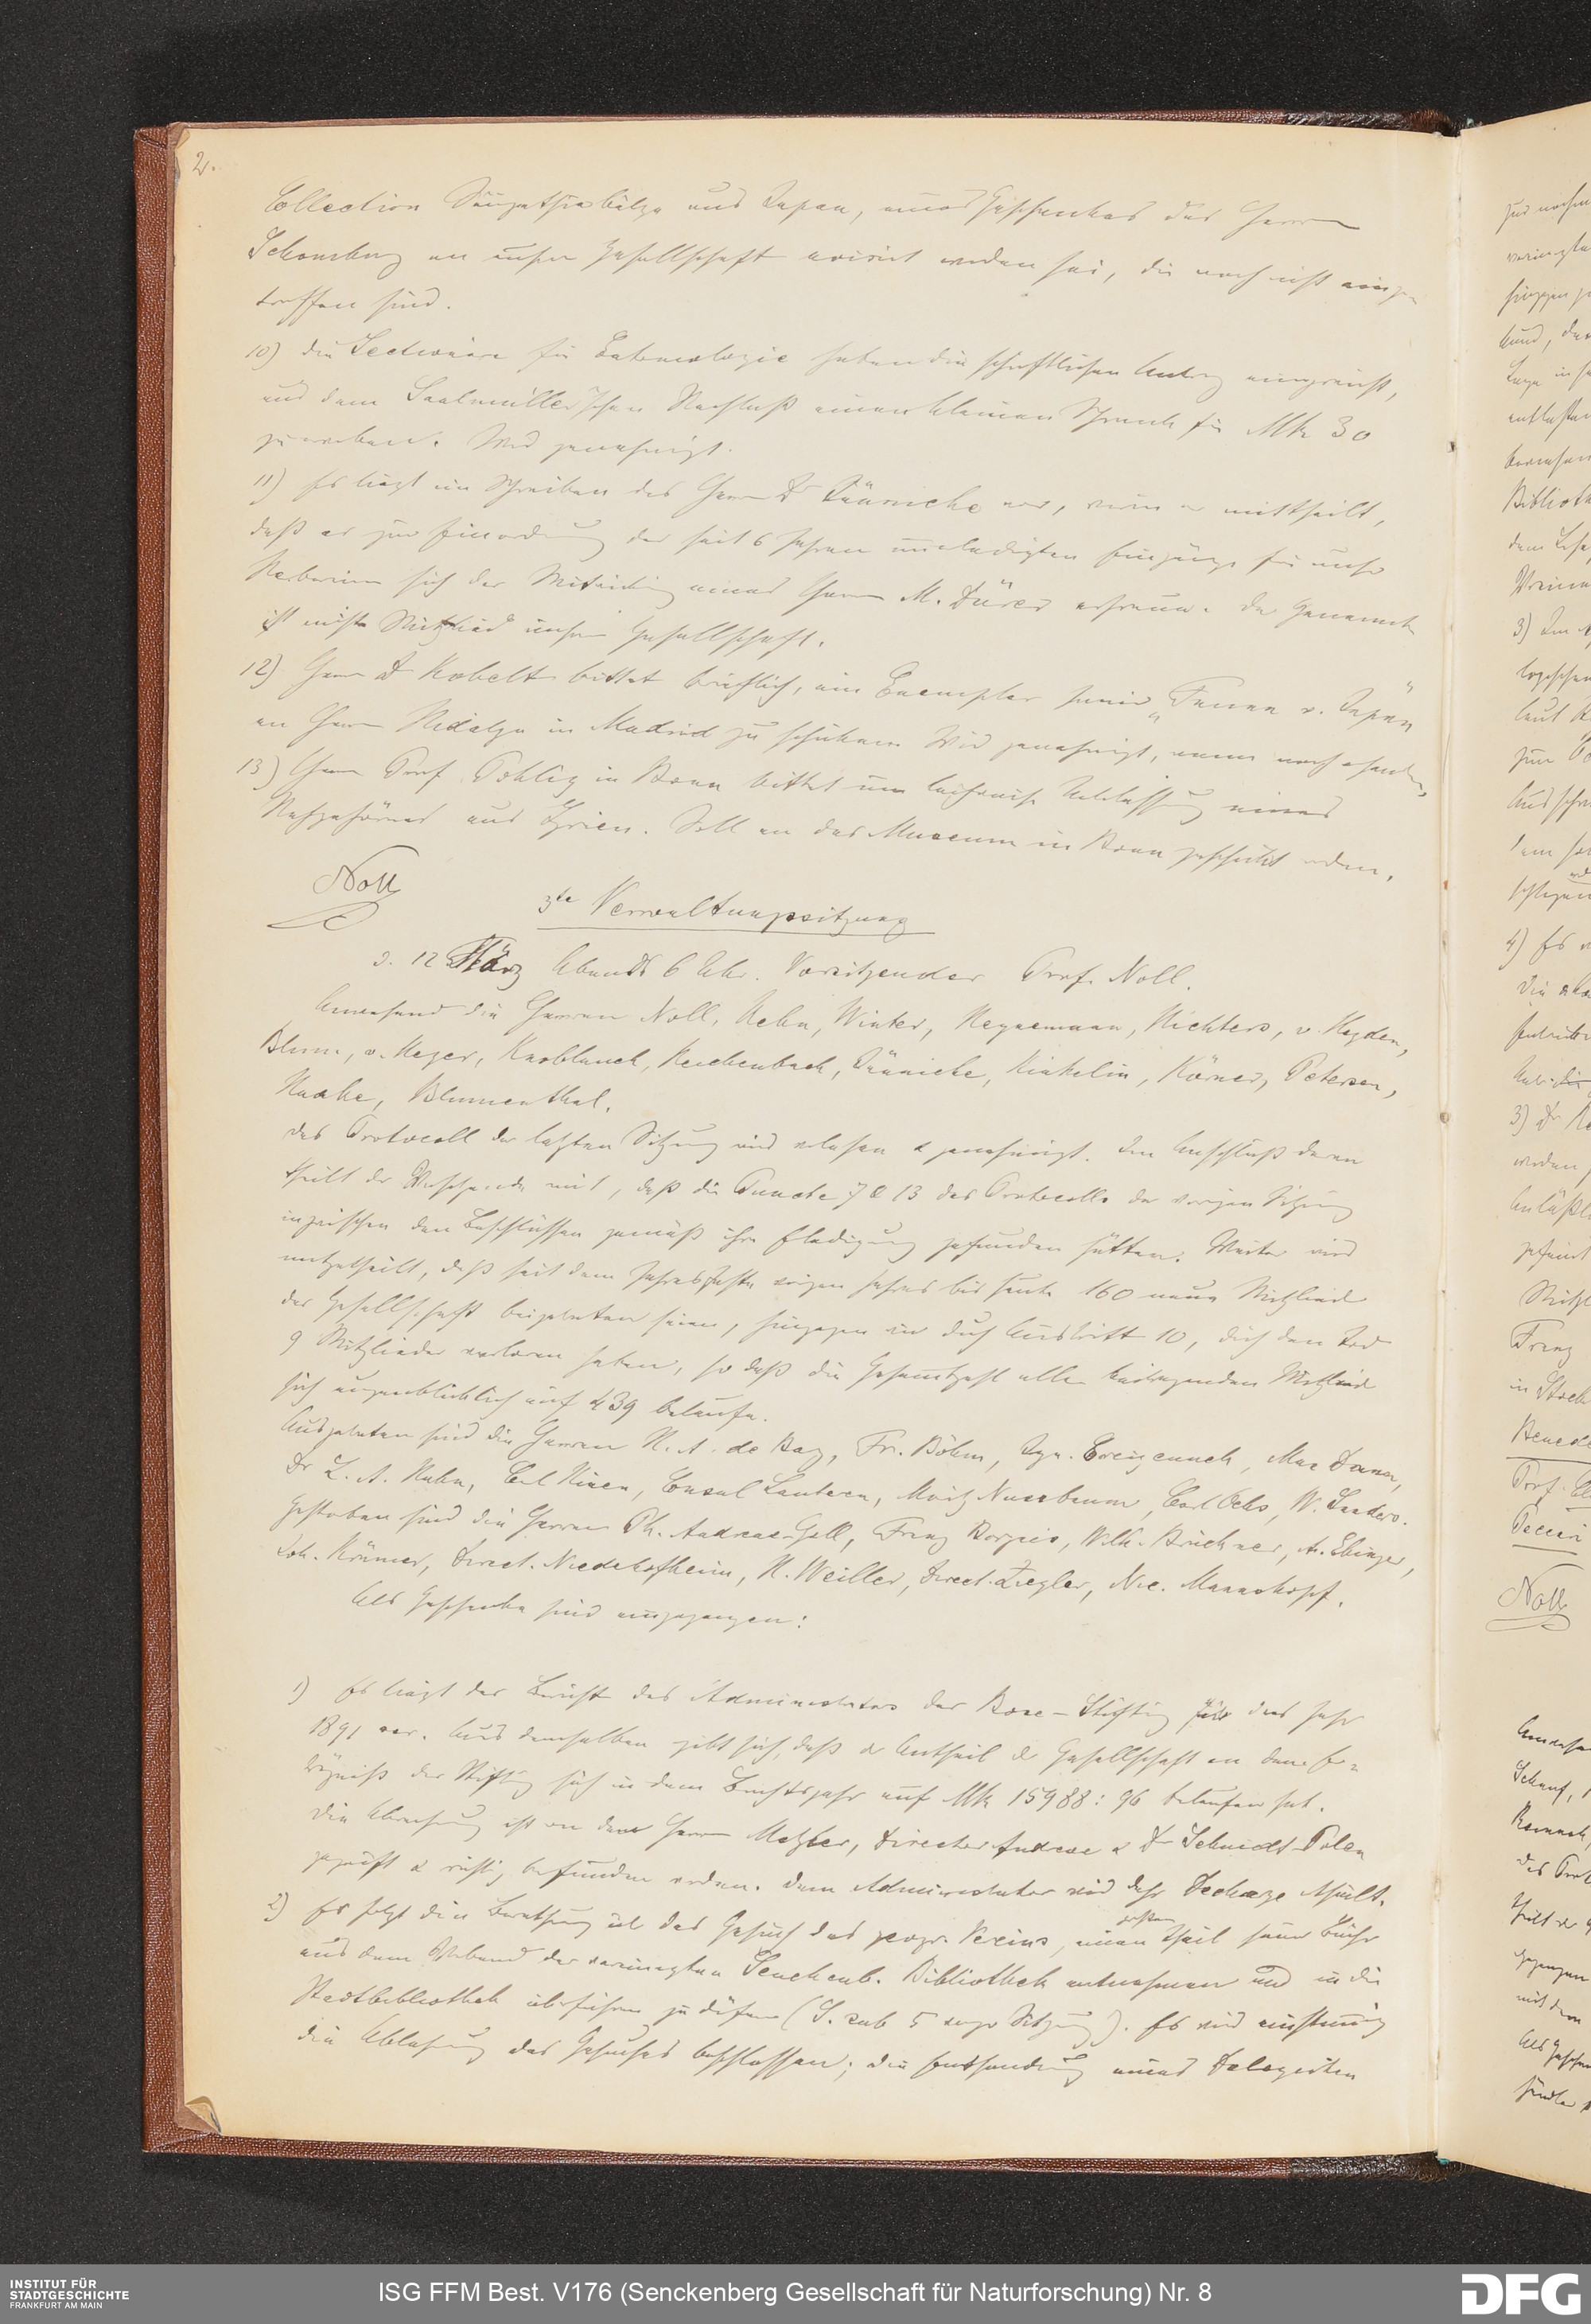 2.
Collection Säugethierbälge aus Japan, eines Geschenkes des Herrn
Schomburg an unsere Gesellschaft avisirt worden sei, die noch nicht einge-
troffen sind.
10) Die Sectionäre für Entomologie haben den schriftlichen Antrag eingereicht,
aus dem Saalmüller'schen Nachlaß einen kleinen Schrank für Mk 30
zu erwerben. Wird genehmigt.
11) Es liegt ein Schreiben des Herrn Dr Jännicke vor, worin er mittheilt,
daß er zur Einordnung der seit 6 Jahren unerledigten Eingänge für unser
Herbarium sich der Mitwirkung eines Herrn M. Dürer erfreue. Der Genannte
ist nicht Mitglied unserer Gesellschaft.
12) Herr Dr Kobelt bittet brieflich, ein Exemplar seiner „Fauna v. Japan"
an Herrn Hidalgo in Madrid zu schicken. Wird genehmigt, wenn noch vorhanden.
13) Herr Prof. Pohlig in Bonn bittet um leihweise Ueberlassung eines
Rehgehörnes aus Syrien. Soll an das Museum in Bonn geschickt werden.
Noll
3te Verwaltungssitzung
d. 12 März Abends 6 Uhr. Vorsitzender Prof. Noll.
Anwesend die Herren Noll, Rehn, Winter, Heynemann, Richters, v. Heyden,
Blum, v. Meyer, Knoblauch, Reichenbach, Jännicke, Kinkelin, Körner, Petersen,
Blumenthal.
Das Protocoll der letzten Sitzung wird verlesen & genehmigt. Im Anschluß daran
theilt der Vorsitzende mit, daß die Puncte 7 & 13 des Protocolls der vorigen Sitzung
inzwischen den Beschlüssen gemäß ihre Erledigung gefunden hätten. Weiter wird
mitgetheilt, daß seit dem Jahresfeste vorigen Jahres bis heute 160 neue Mitglieder
der Gesellschaft beigetreten seien, hingegen wir durch Austritt 10, durch den Tod
9 Mitglieder verloren haben, so daß die Gesammtzahl aller beitragenden Mitglieder
sich augenblicklich auf 439 belaufe.
Ausgetreten sind die Herren H. A. de Bary, Fr. Böhm, Ign. Creizenach, Max Doner,
Dr L. A. Hahn, Consul Lauteren, Moritz Nussbaum, Carl Ochs, W. Sanders.
Gestorben sind die Herren Ph. Andreae-Goll, Franz Borgnis, Wilh. Brückner, A. Ebinger,
Joh. Krämer, Direct. Niederhofheim, H. Weiller, Direct. Ziegler, Nic. Manskopf.
Als Geschenke sind eingegangen:
1) Es liegt der Bericht des Administrators der Bose-Stiftung für das Jahr
1891 vor. Aus demselben gibt sich, daß der Antheil der Gesellschaft an dem Er-
trägniß der Stiftung sich in dem Berichtsjahr auf Mk 15988:96 belaufen hat.
Die Abrechnung ist von den Herren Metzler, Director Andreae & Dr Schmidt-Polex
geprüft & richtig befunden worden. Dem Administrator wird daher Decharge ertheilt.
2) Es folgt die Berathung üb. das Gesuch des geogr. Vereins, einen großen Theil seiner Bücher
aus dem Verband der vereinigten Senckenb. Bibliothek entnehmen und in die
Stadtbibliothek überführen zu dürfen (S. sub 5 voriger Sitzung). Es wird einstimmig
die Ablehnung des Gesuches beschlossen; die Entsendung eines Delegirten
INSTITUT FÜR
STADTGESCHICHTE
FRANKFURT AM MAIN
ISG FFM Best. V176 (Senckenberg Gesellschaft für Naturforschung) Nr. 8
DFG